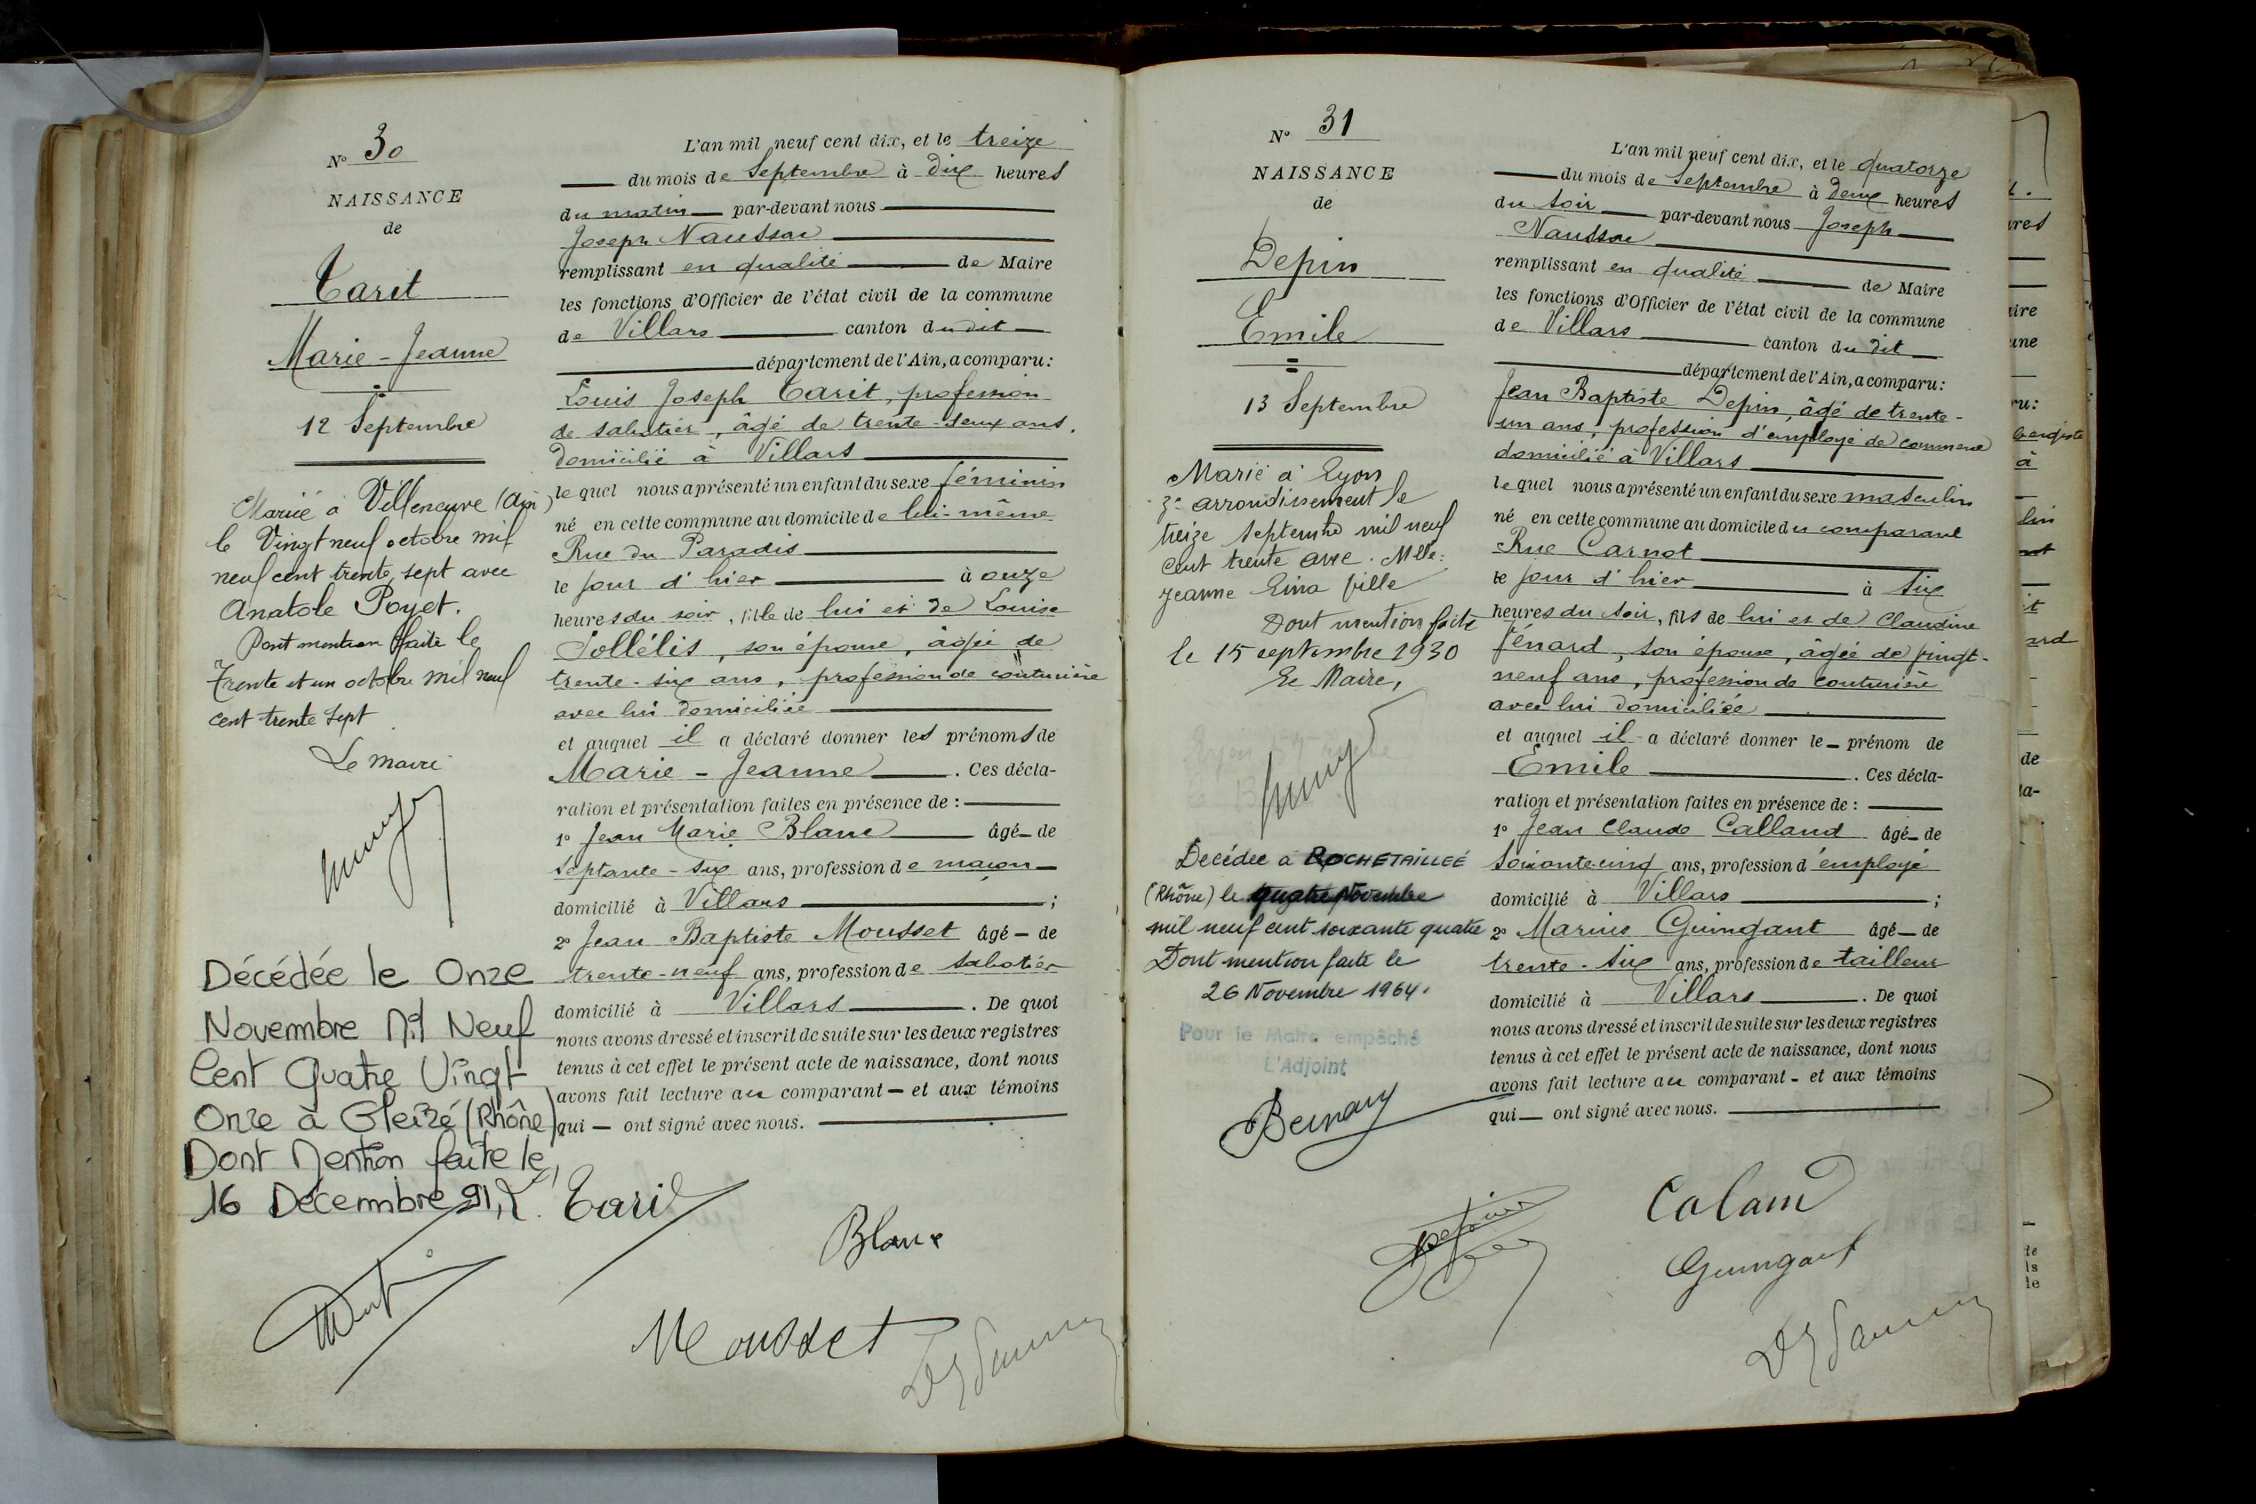 N° 30
NAISSANCE
de
Tarit
Marie-Jeanne
12 Septembre
Mariée à Villeneuve (Ain)
le Vingt neuf octobre mil
neuf cent trente sept avec
Anatole Poyet.
Dont mention faite le
Trente et un octobre mil neuf
cent trente sept
Le maire
Décédée le Onze
Novembre Mil Neuf
Cent Quatre Vingt
Onze à Gleizé (Rhône)
Dont Mention faite le,
16 Décembre 91,
L'an mil neuf cent dix, et le treize
du mois de Septembre à dix heures
du matin par-devant nous
Joseph Naussac
remplissant en qualité de Maire
les fonctions d'Officier de l'état civil de la commune
de Villars canton du dit
département de l'Ain, a comparu:
Louis Joseph Tarit, profession
de sabotier, âgé de trente-deux ans.
domicilié à Villars
lequel nous a présenté un enfant du sexe féminin
né en cette commune au domicile de lui-même
Rue du Paradis
le jour d'hier à onze
heures du soir, fille de lui et de Louise
Sollélis, son épouse, âgée de
trente-six ans, profession de couturière
avec lui domiciliée
et auquel il a déclaré donner les prénoms de
Marie-Jeanne. Ces décla-
ration et présentation faites en présence de :
1° Jean Marie Blanc âgé de
septante-six ans, profession de maçon
domicilié à Villars ;
2° Jean Baptiste Mousset âgé de
trente-neuf ans, profession de sabotier
domicilié à Villars. De quoi
nous avons dressé et inscrit de suite sur les deux registres
tenus à cet effet le présent acte de naissance, dont nous
avons fait lecture au comparant et aux témoins
qui ont signé avec nous.
Tarit
Blanc
Mousset
N° 31
NAISSANCE
de
Depin
Emile
=
13 Septembre
Marié à Lyon
3e arrondissement le
treize septembre mil neuf
cent trente avec Melle.
Jeanne Lina Ville
Dont mention faite
le 15 septembre 1930
Le Maire,
Décédée à ROCHETAILLEE
(Rhône) le quatre Novembre
mil neuf cent soixante quatre
Dont mention faite le
26 Novembre 1964.
Pour le Maire empêché
L'Adjoint
L'an mil neuf cent dix, et le quatorze
du mois de Septembre à deux heures
du soir par-devant nous Joseph
Naussac
remplissant en qualité de Maire
les fonctions d'Officier de l'état civil de la commune
de Villars canton du dit
département de l'Ain, a comparu:
Jean Baptiste Depin, âgé de trente-
un ans, profession d'employé de commerce
domicilié à Villars
lequel nous a présenté un enfant du sexe masculin
né en cette commune au domicile du comparant
Rue Carnot
le jour d'hier à six
heures du soir, fils de lui et de Claudine
Fénard, son épouse, âgée de vingt-
neuf ans, profession de couturière
avec lui domiciliée
et auquel il a déclaré donner le prénom de
Emile. Ces décla-
ration et présentation faites en présence de :
1° Jean Claude Calland âgé de
soixante-cinq ans, profession d'employé
domicilié à Villars ;
2° Marius Guingant âgé de
trente-six ans, profession de tailleur
domicilié à Villars. De quoi
nous avons dressé et inscrit de suite sur les deux registres
tenus à cet effet le présent acte de naissance, dont nous
avons fait lecture au comparant et aux témoins
qui ont signé avec nous.
Calland
Guingant